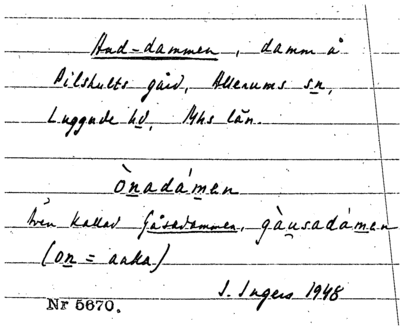 And-dammen, damm å
Pilshults gård, Allerums sn,
Luggude hd, Mhs län.
ònadámen
Även kallad Gåsadammen, gàusadámen
(on = anka)
I. Ingers 1948
Nr 5670.